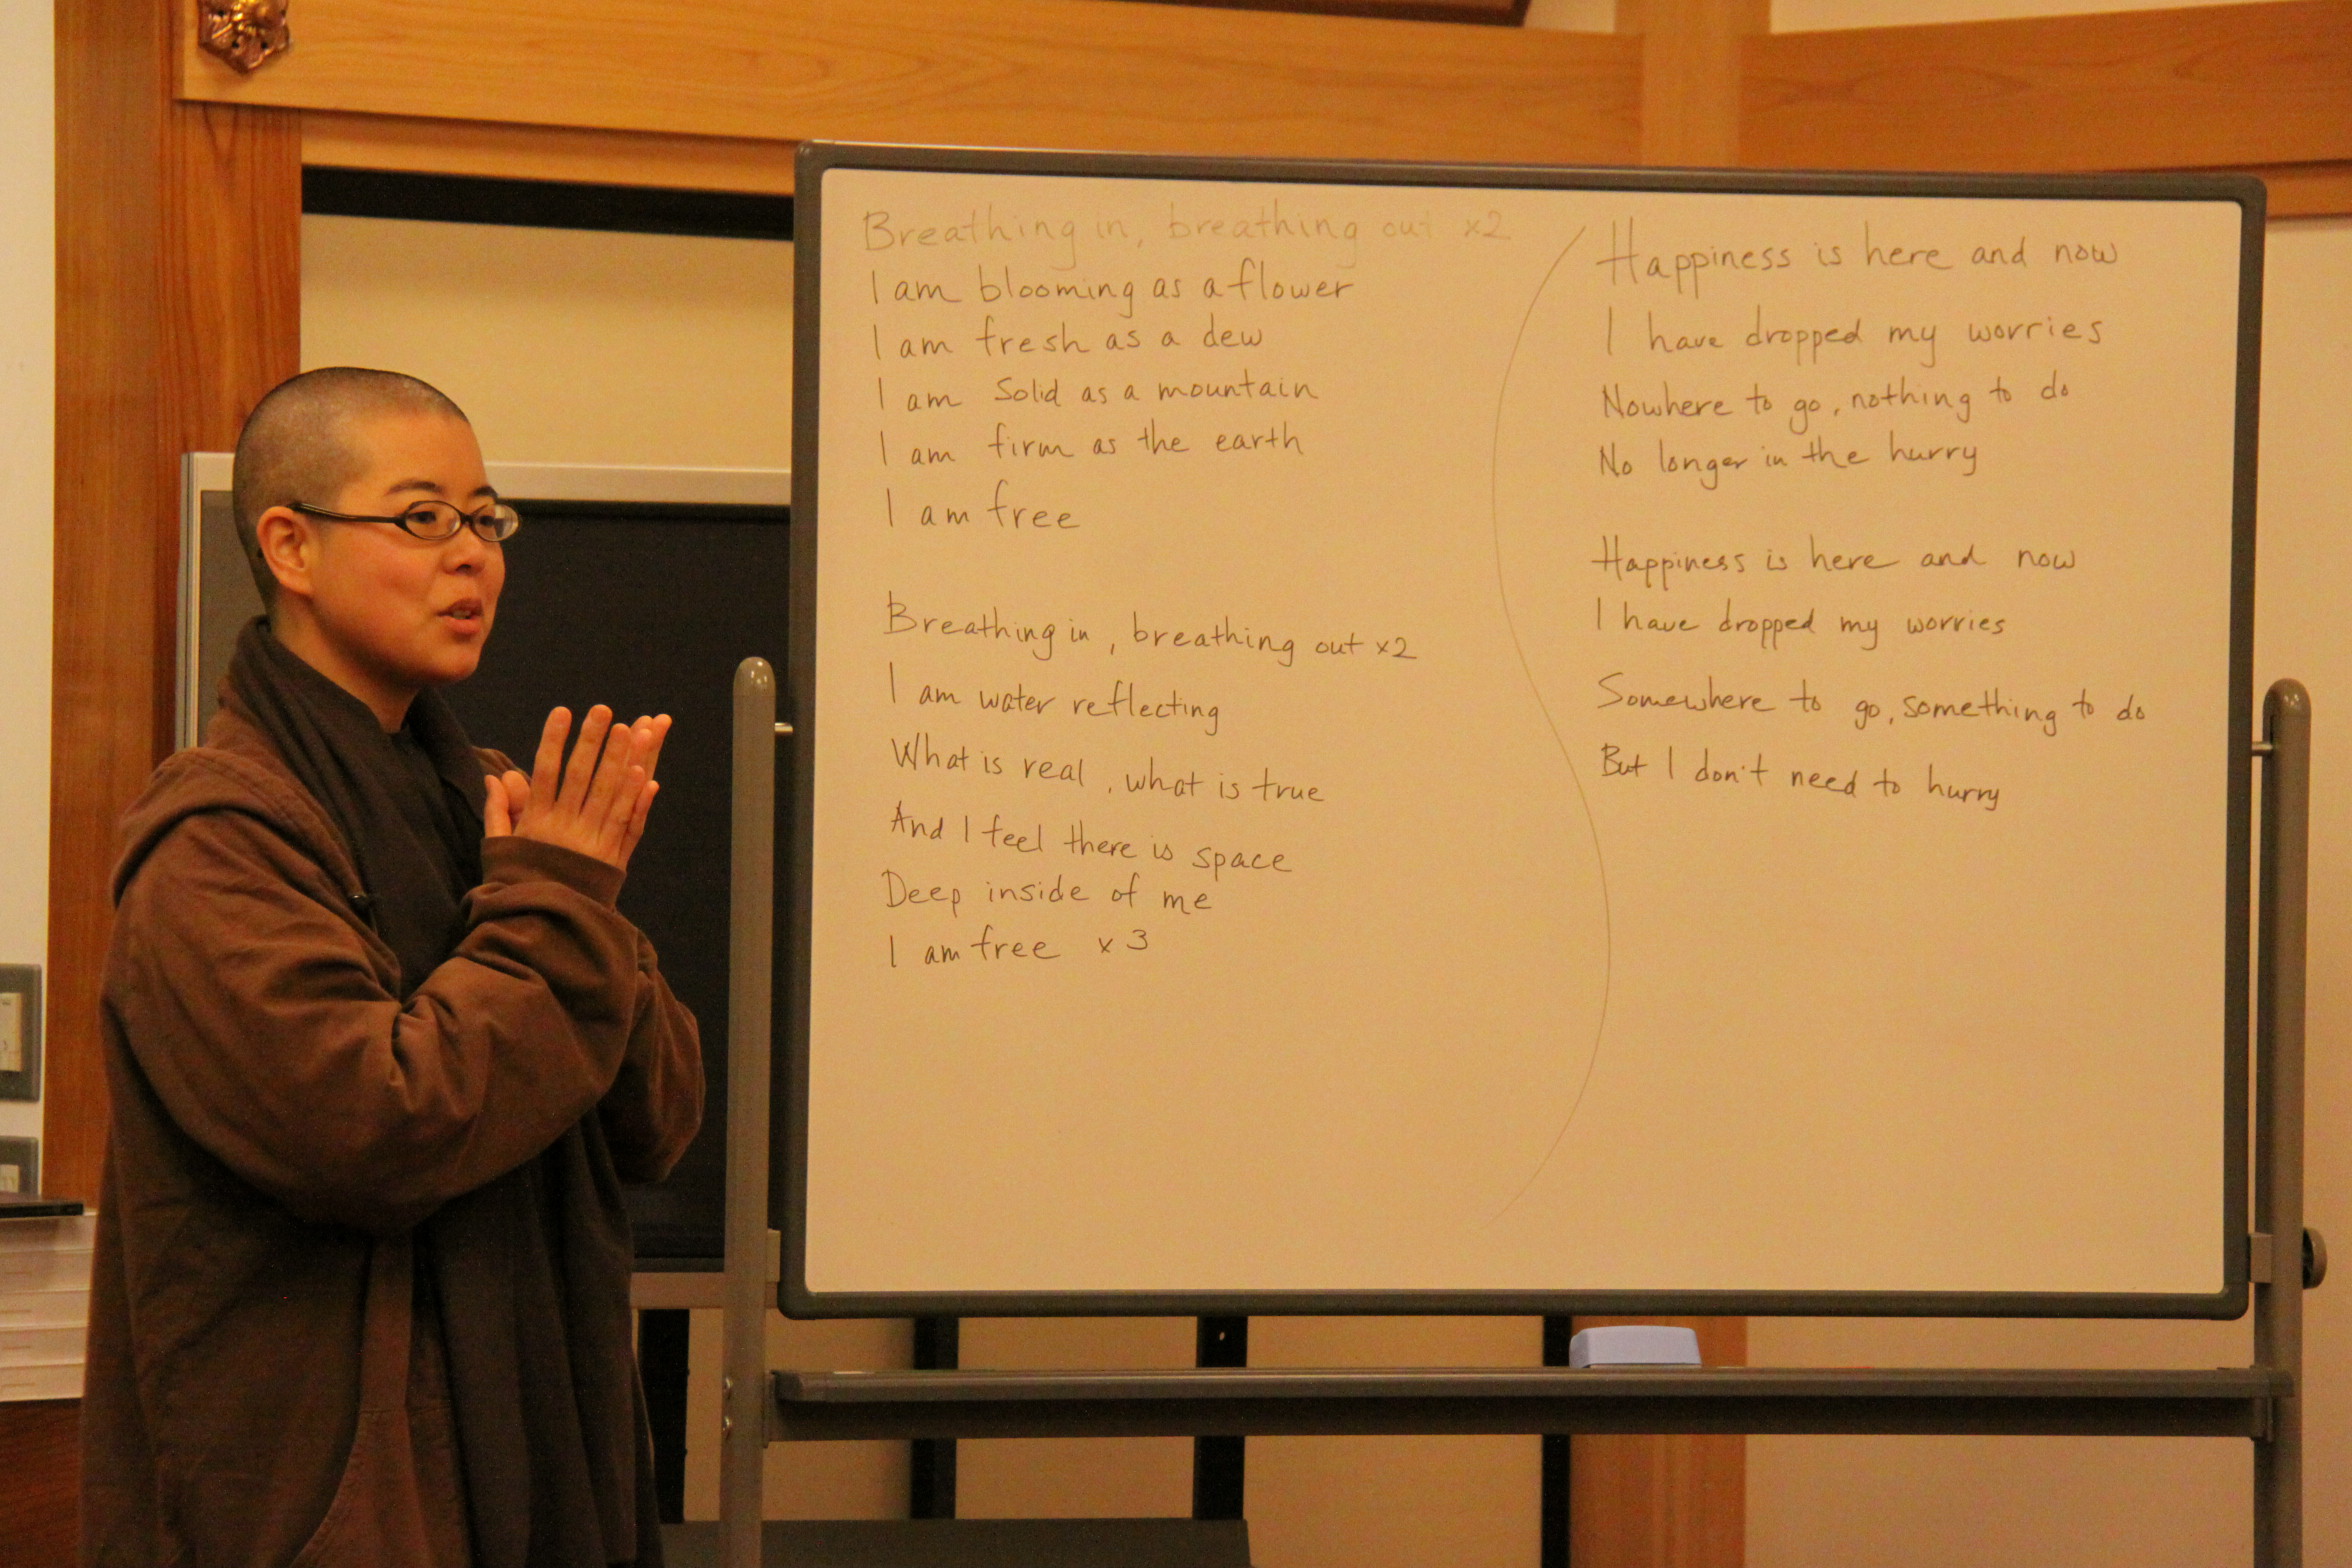 Breathing in, breathing out x2
I am blooming as a flower
I am fresh as a dew
I am Solid as a mountain
I am firm as the earth
I am free
Breathing in, breathing out x2
I am water reflecting
What is real, what is true
And I feel there is space
Deep inside of me
I am free x 3
Happiness is here and now
I have dropped my worries
Nowhere to go, nothing to do
No longer in the hurry
Happiness is here and now
I have dropped my worries
Somewhere to go, something to do
But I don't need to hurry